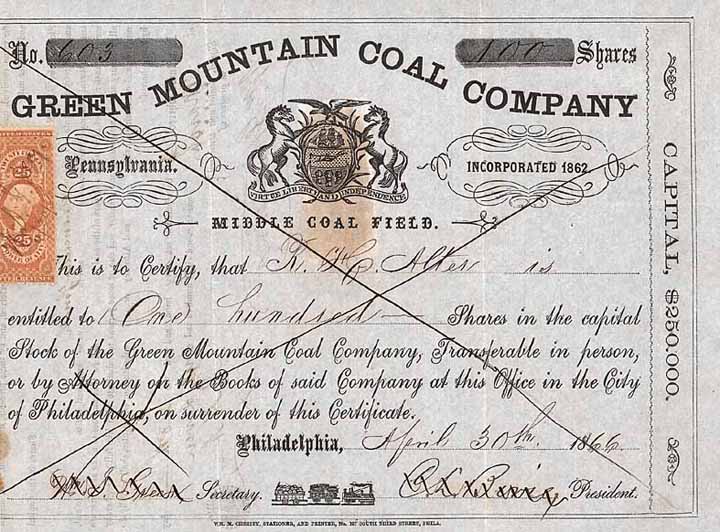 No. 603 100 Shares
GREEN MOUNTAIN COAL COMPANY
Pennsylvania. INCORPORATED 1862
VIRTUE LIBERTY AND INDEPENDENCE
MIDDLE COAL FIELD.
25
25
CAPITAL, $250.000.
This is to Certify, that R. H. Alter is
entitled to One hundred Shares in the capital
Stock of the Green Mountain Coal Company, Transferable in person,
or by Attorney on the Books of said Company at this Office in the City
of Philadelphia, on surrender of this Certificate.
Philadelphia, April 30th. 1866
Secretary. President.
STATIONER, AND PRINTER, No. SOUTH THIRD STREET, PHILA.